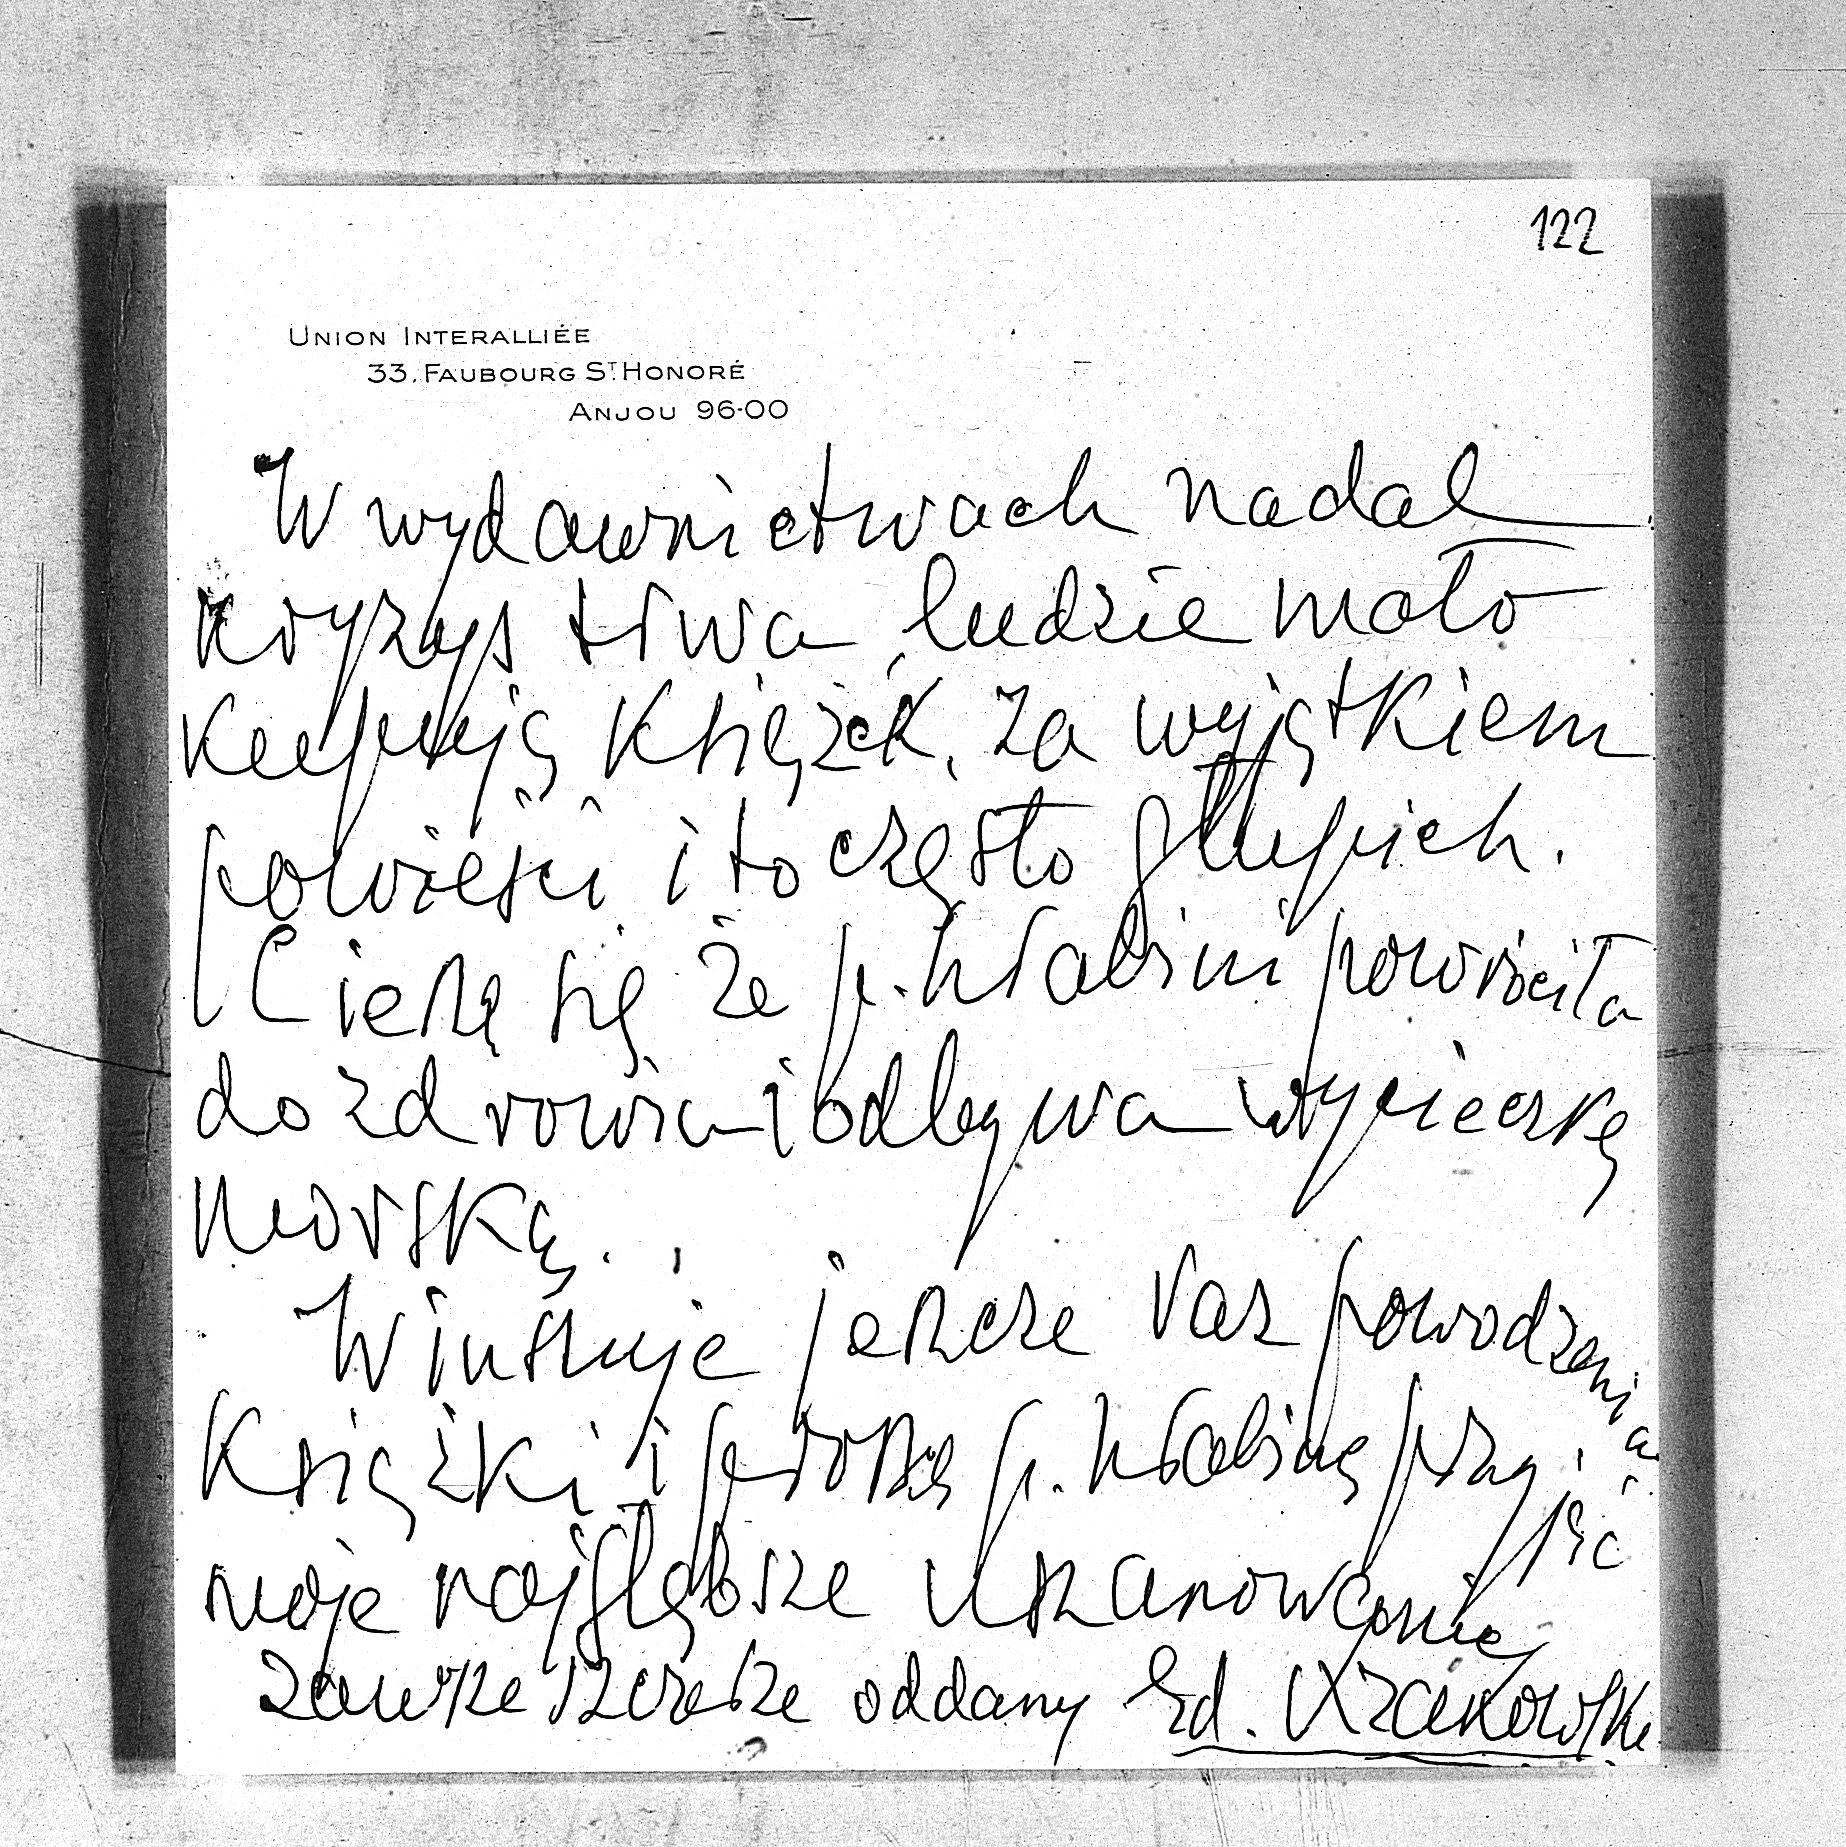 122
UNION INTERALLIÉE
33. FAUBOURG ST. HONORÉ
ANJOU 96-00
W wydawnictwach nadal
kryzys trwa, ludzie mało
kupują książek, za wyjątkiem
powieści i to często głupich.
Cieszę się że p. hrabini powróciła
do zdrowia i odbywa wycieczkę
morską.
Winszuję jeszcze raz powodzenia
książki i proszę p. hrabinę przyjąć
moje najgłębsze uszanowanie
zawsze szczerze oddany Ed. Krakowski